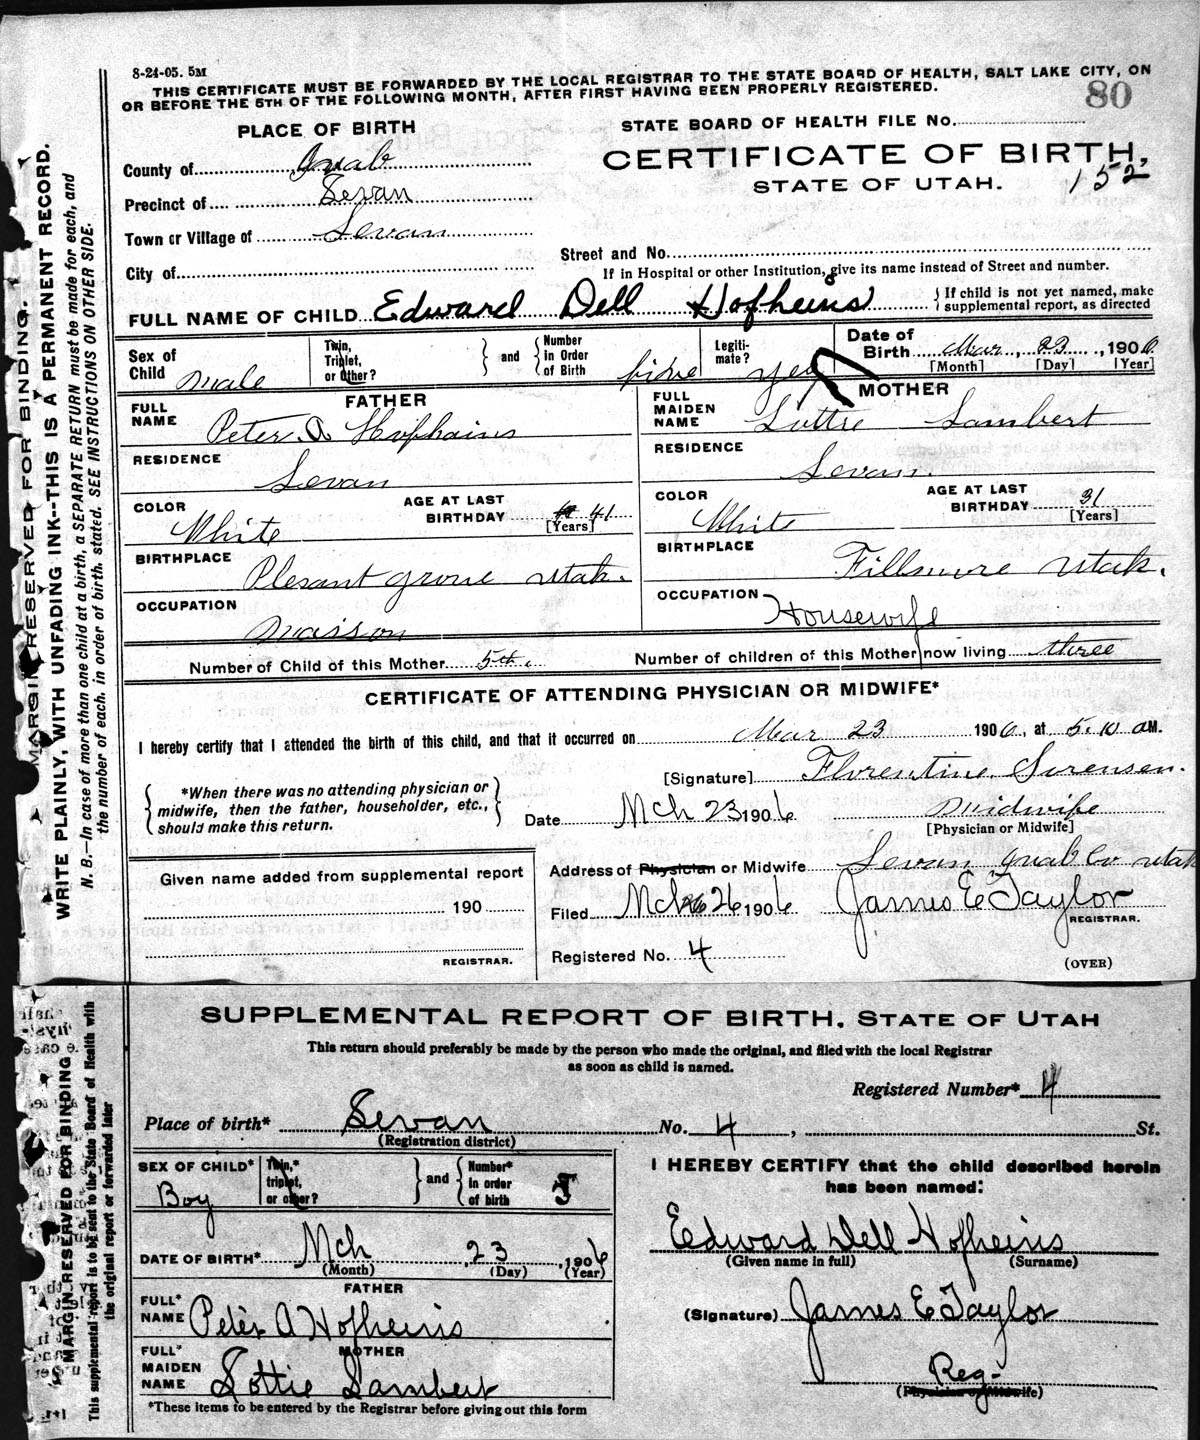 8-24-05. 5M
THIS CERTIFICATE MUST BE FORWARDED BY THE LOCAL REGISTRAR TO THE STATE BOARD OF HEALTH, SALT LAKE CITY, ON
OR BEFORE THE 5TH OF THE FOLLOWING MONTH, AFTER FIRST HAVING BEEN PROPERLY REGISTERED.
80
PLACE OF BIRTH
STATE BOARD OF HEALTH FILE No.
County of Juab
CERTIFICATE OF BIRTH,
Precinct of Levan
STATE OF UTAH. 152
Town or Village of Levan
Street and No.
City of
If in Hospital or other Institution, give its name instead of Street and number.
FULL NAME OF CHILD Edward Dell Hofheins
If child is not yet named, make
supplemental report, as directed
Sex of Child Male
Twin, Triplet, or Other?
and
Number in Order of Birth five
Legitimate? yes
Date of Birth Mar, 23, 1906
[Month] [Day] [Year]
FATHER
MOTHER
FULL NAME Peter A Hofhains
FULL MAIDEN NAME Lottie Lambert
RESIDENCE Levan
RESIDENCE Levan.
COLOR White
AGE AT LAST BIRTHDAY 41 [Years]
COLOR White
AGE AT LAST BIRTHDAY 31 [Years]
BIRTHPLACE Plesant grove Utah.
BIRTHPLACE Fillmore Utah.
OCCUPATION Maisson
OCCUPATION Housewife
Number of Child of this Mother 5th.
Number of children of this Mother now living three
CERTIFICATE OF ATTENDING PHYSICIAN OR MIDWIFE*
I hereby certify that I attended the birth of this child, and that it occurred on Mar 23 1906, at 5.10 AM.
[Signature] Florentine Sorensen.
*When there was no attending physician or
midwife, then the father, householder, etc.,
should make this return.
Date Mch 23 1906
Midwife
[Physician or Midwife]
Address of Physician or Midwife Levan Juab Co Utah
Given name added from supplemental report
190
REGISTRAR.
Filed Mch 26 1906
James E Taylor
REGISTRAR.
Registered No. 4
(OVER)
MARGIN RESERVED FOR BINDING.
WRITE PLAINLY, WITH UNFADING INK--THIS IS A PERMANENT RECORD.
N. B.—In case of more than one child at a birth, a SEPARATE RETURN must be made for each, and
the number of each, in order of birth, stated. SEE INSTRUCTIONS ON OTHER SIDE.
SUPPLEMENTAL REPORT OF BIRTH. STATE OF UTAH
This return should preferably be made by the person who made the original, and filed with the local Registrar
as soon as child is named.
Registered Number* 4
Place of birth* Levan No. 4, St.
(Registration district)
SEX OF CHILD* Boy
Twin,* triplet, or other?
and
Number* in order of birth 5
I HEREBY CERTIFY that the child described herein
has been named:
Edward Dell Hofheins
(Given name in full) (Surname)
DATE OF BIRTH* Mch 23, 1906
(Month) (Day) (Year)
FATHER
FULL* NAME Peter A Hofheins
(Signature) James E Taylor
MOTHER
FULL* MAIDEN NAME Lottie Lambert
Reg-
(Physician or Midwife)
*These items to be entered by the Registrar before giving out this form
MARGIN RESERVED FOR BINDING
This supplemental report is to be sent to the State Board of Health with
the original report or forwarded later